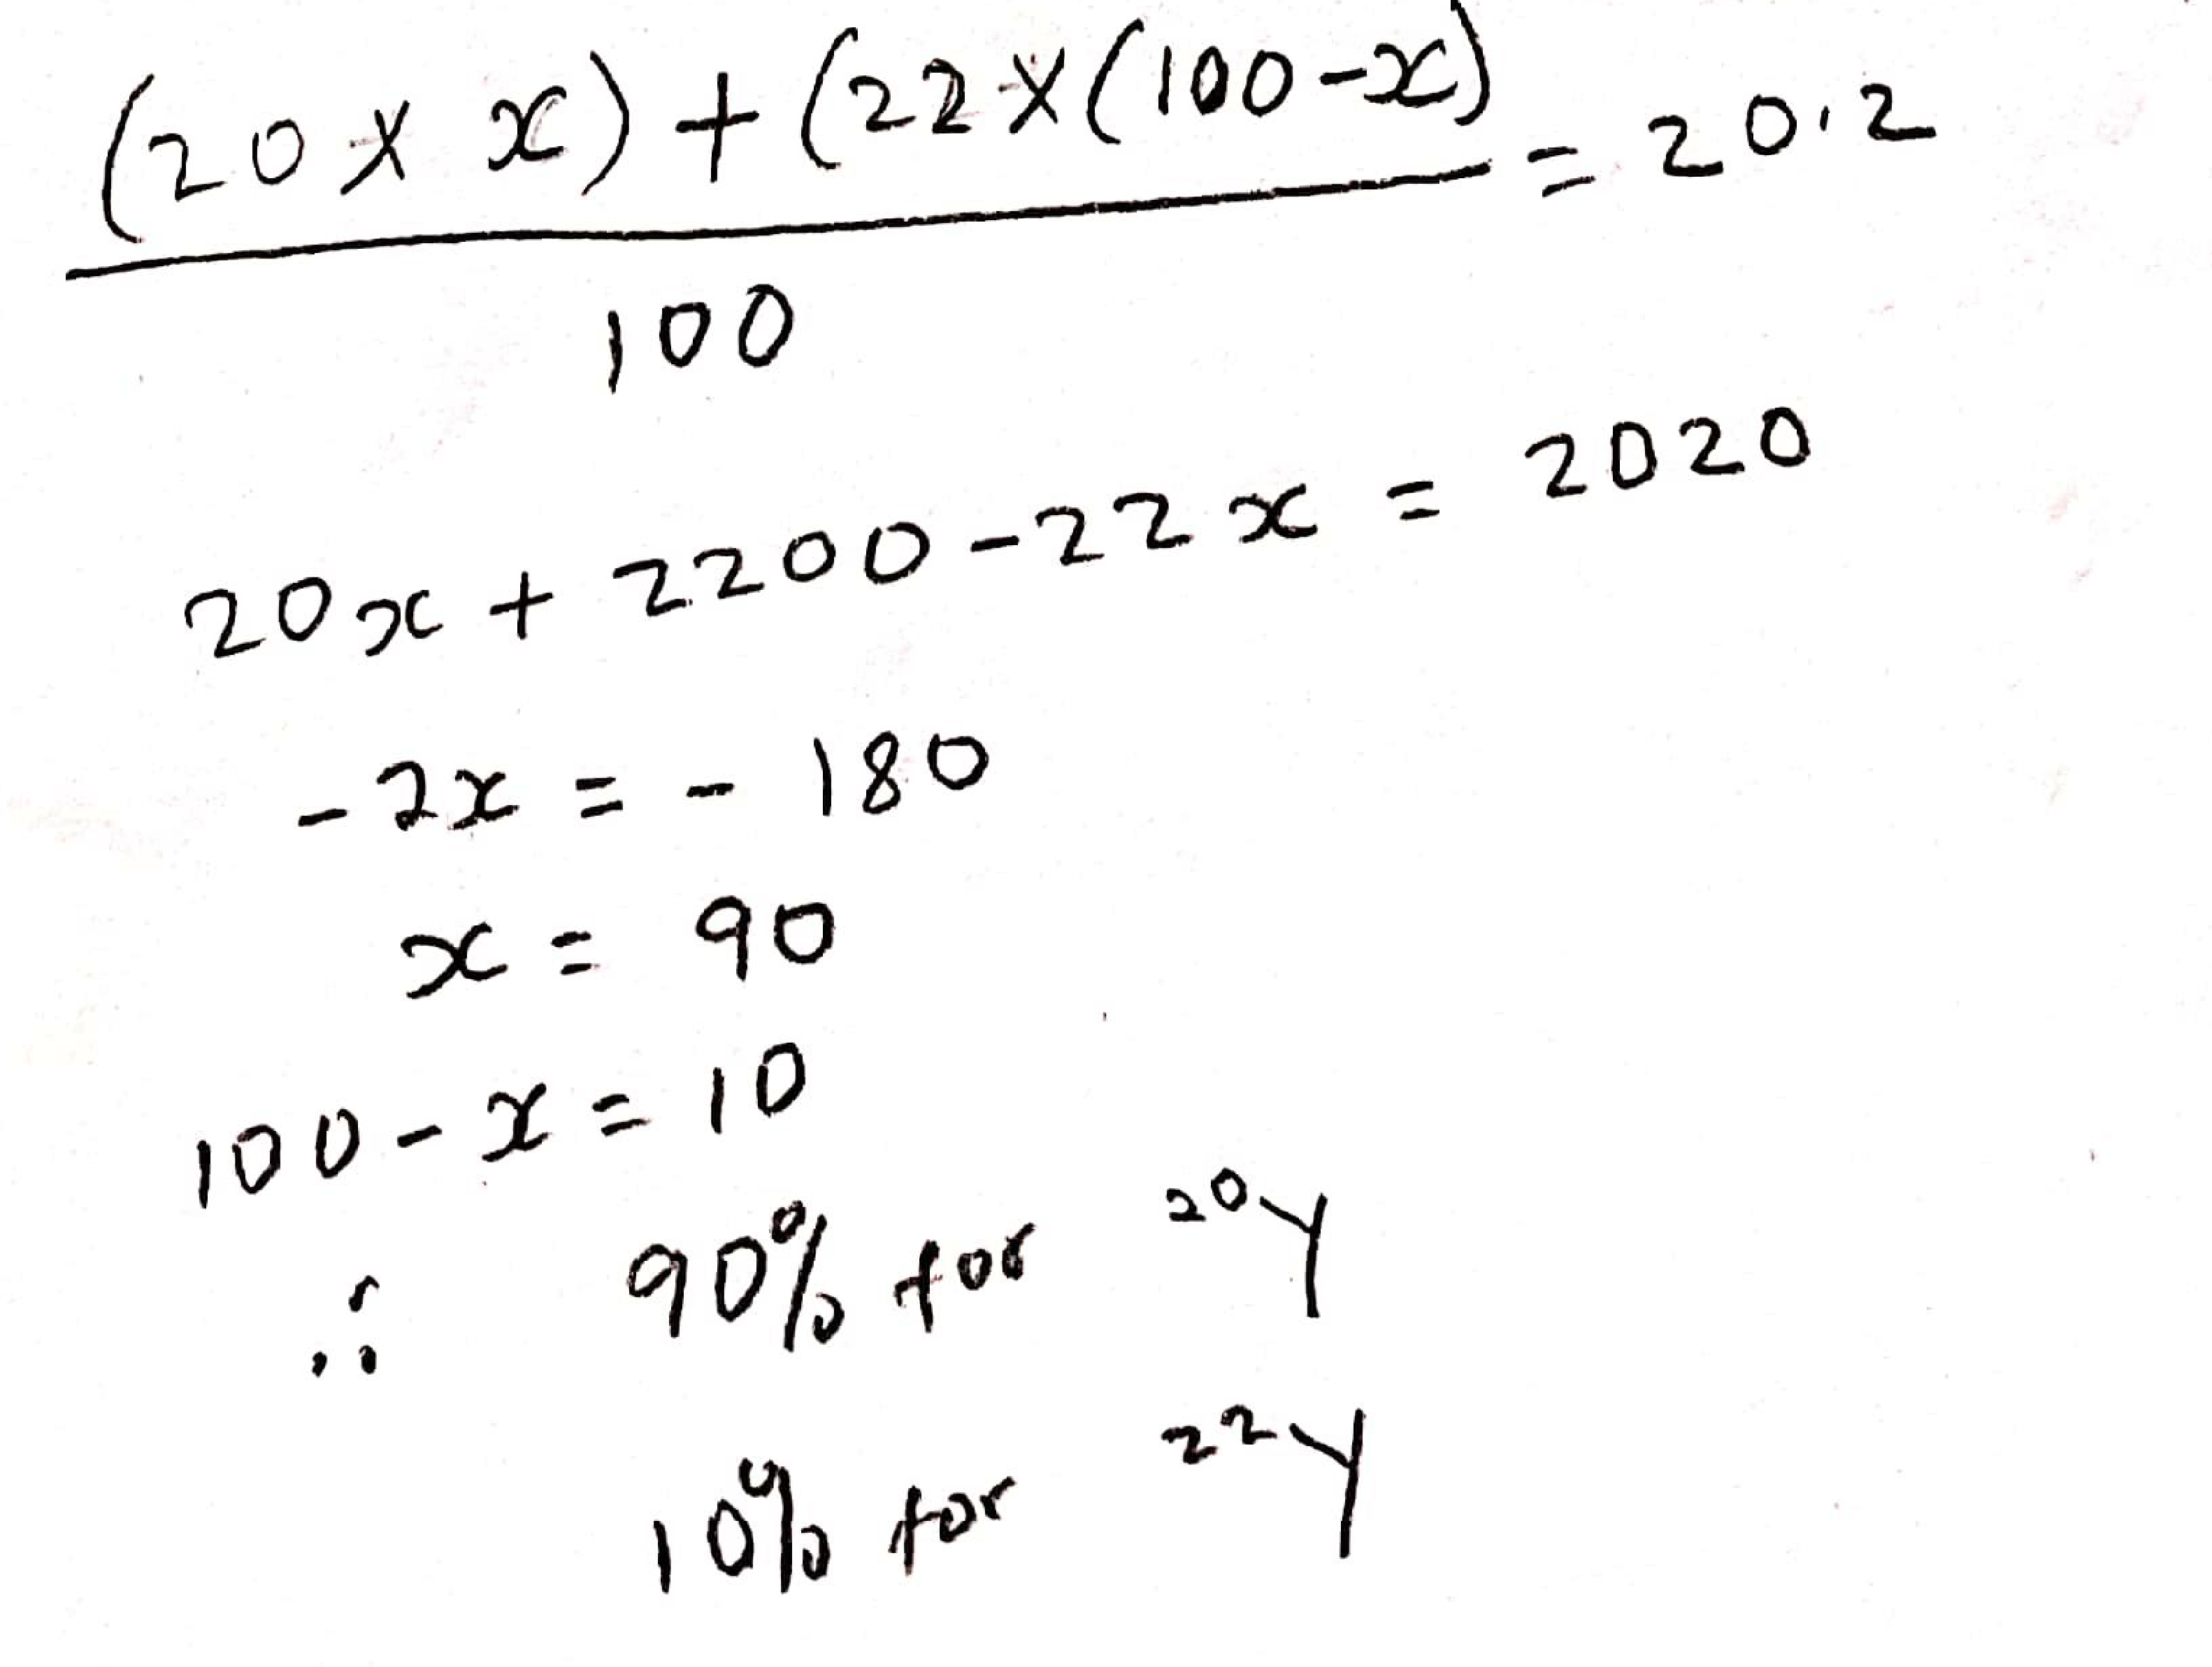 (20 × x) + (22 × (100 - x) = 20.2
100
20x + 2200 - 22x = 2020
- 2x = - 180
x = 90
100 - x = 10
∴ 90% for ²⁰Y
10% for ²²Y